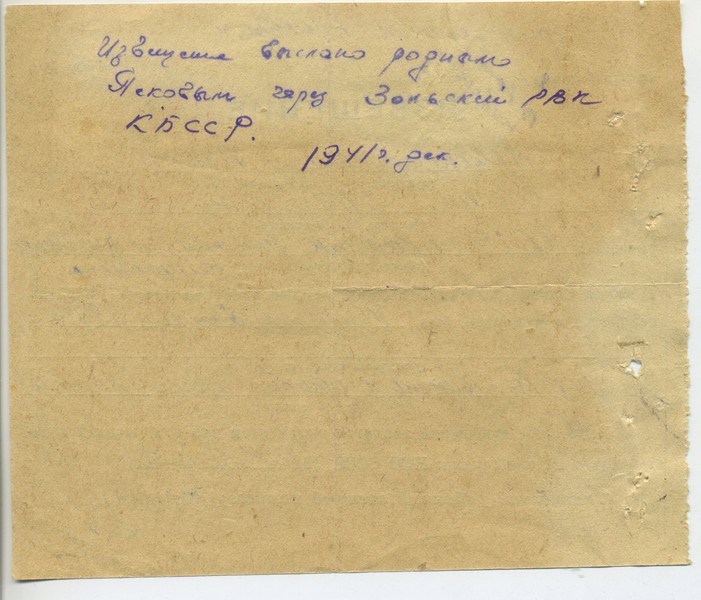 Извещение выслано родным
Песковым через Зольский РВК
КБССР.
1941 г. дек.